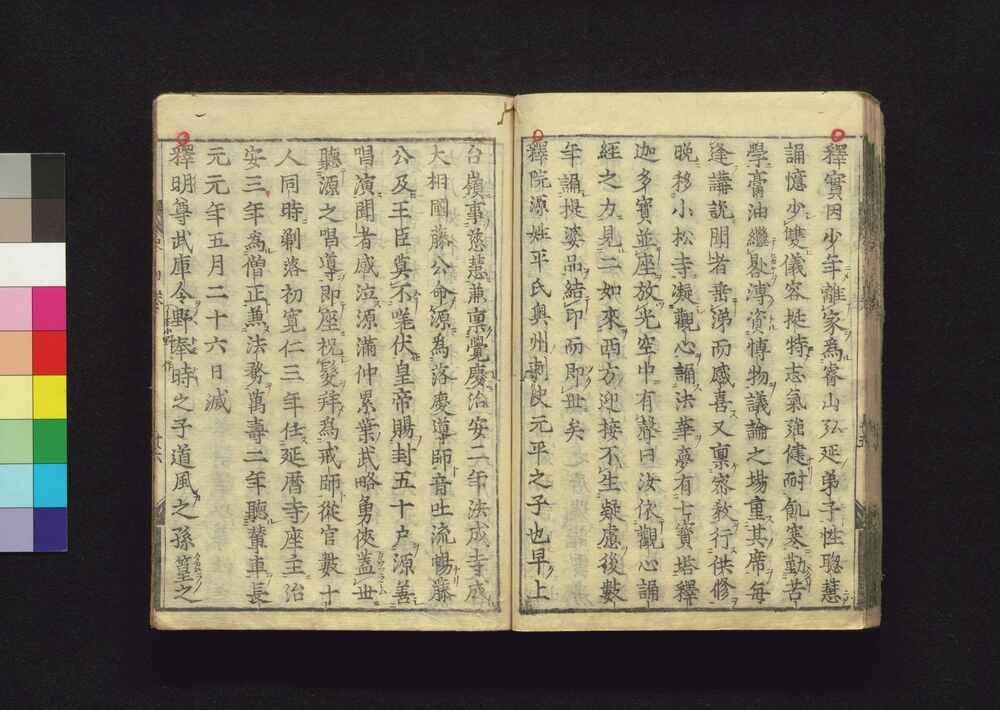 釋實因少年離家為睿山弘延弟子性聰慧
誦憶少雙儀容挺特志氣強健耐飢寒勤苦
學膏油繼晷溥資博物議論之場重其席每
逢講說聞者垂涕而感喜又稟密教行供修
晚移小松寺凝觀心誦法華夢有七寶塔釋
迦多寶並座放光空中有聲曰汝依觀心誦
經之力見二如來西方迎接不生疑慮後數
年誦提婆品結印而即世矣
釋院源姓平氏奧州刺使元平之子也早上
台嶺事慈慧兼稟覺慶治安二年法成寺成
大相國藤公命源為落慶導師音吐流暢藤
公及王臣莫不嘆伏皇帝賜封五十戶源善
唱演聞者感泣源滿仲累葉武略勇俠蓋世
聽源之唱導即座祝髮拜為戒師從官數十
人同時剃落初寬仁三年任延曆寺座主治
安三年為僧正兼法務萬壽二年聽輦車長
元元年五月二十六日滅
釋明尊武庫令野奉時之子道風之孫篁之